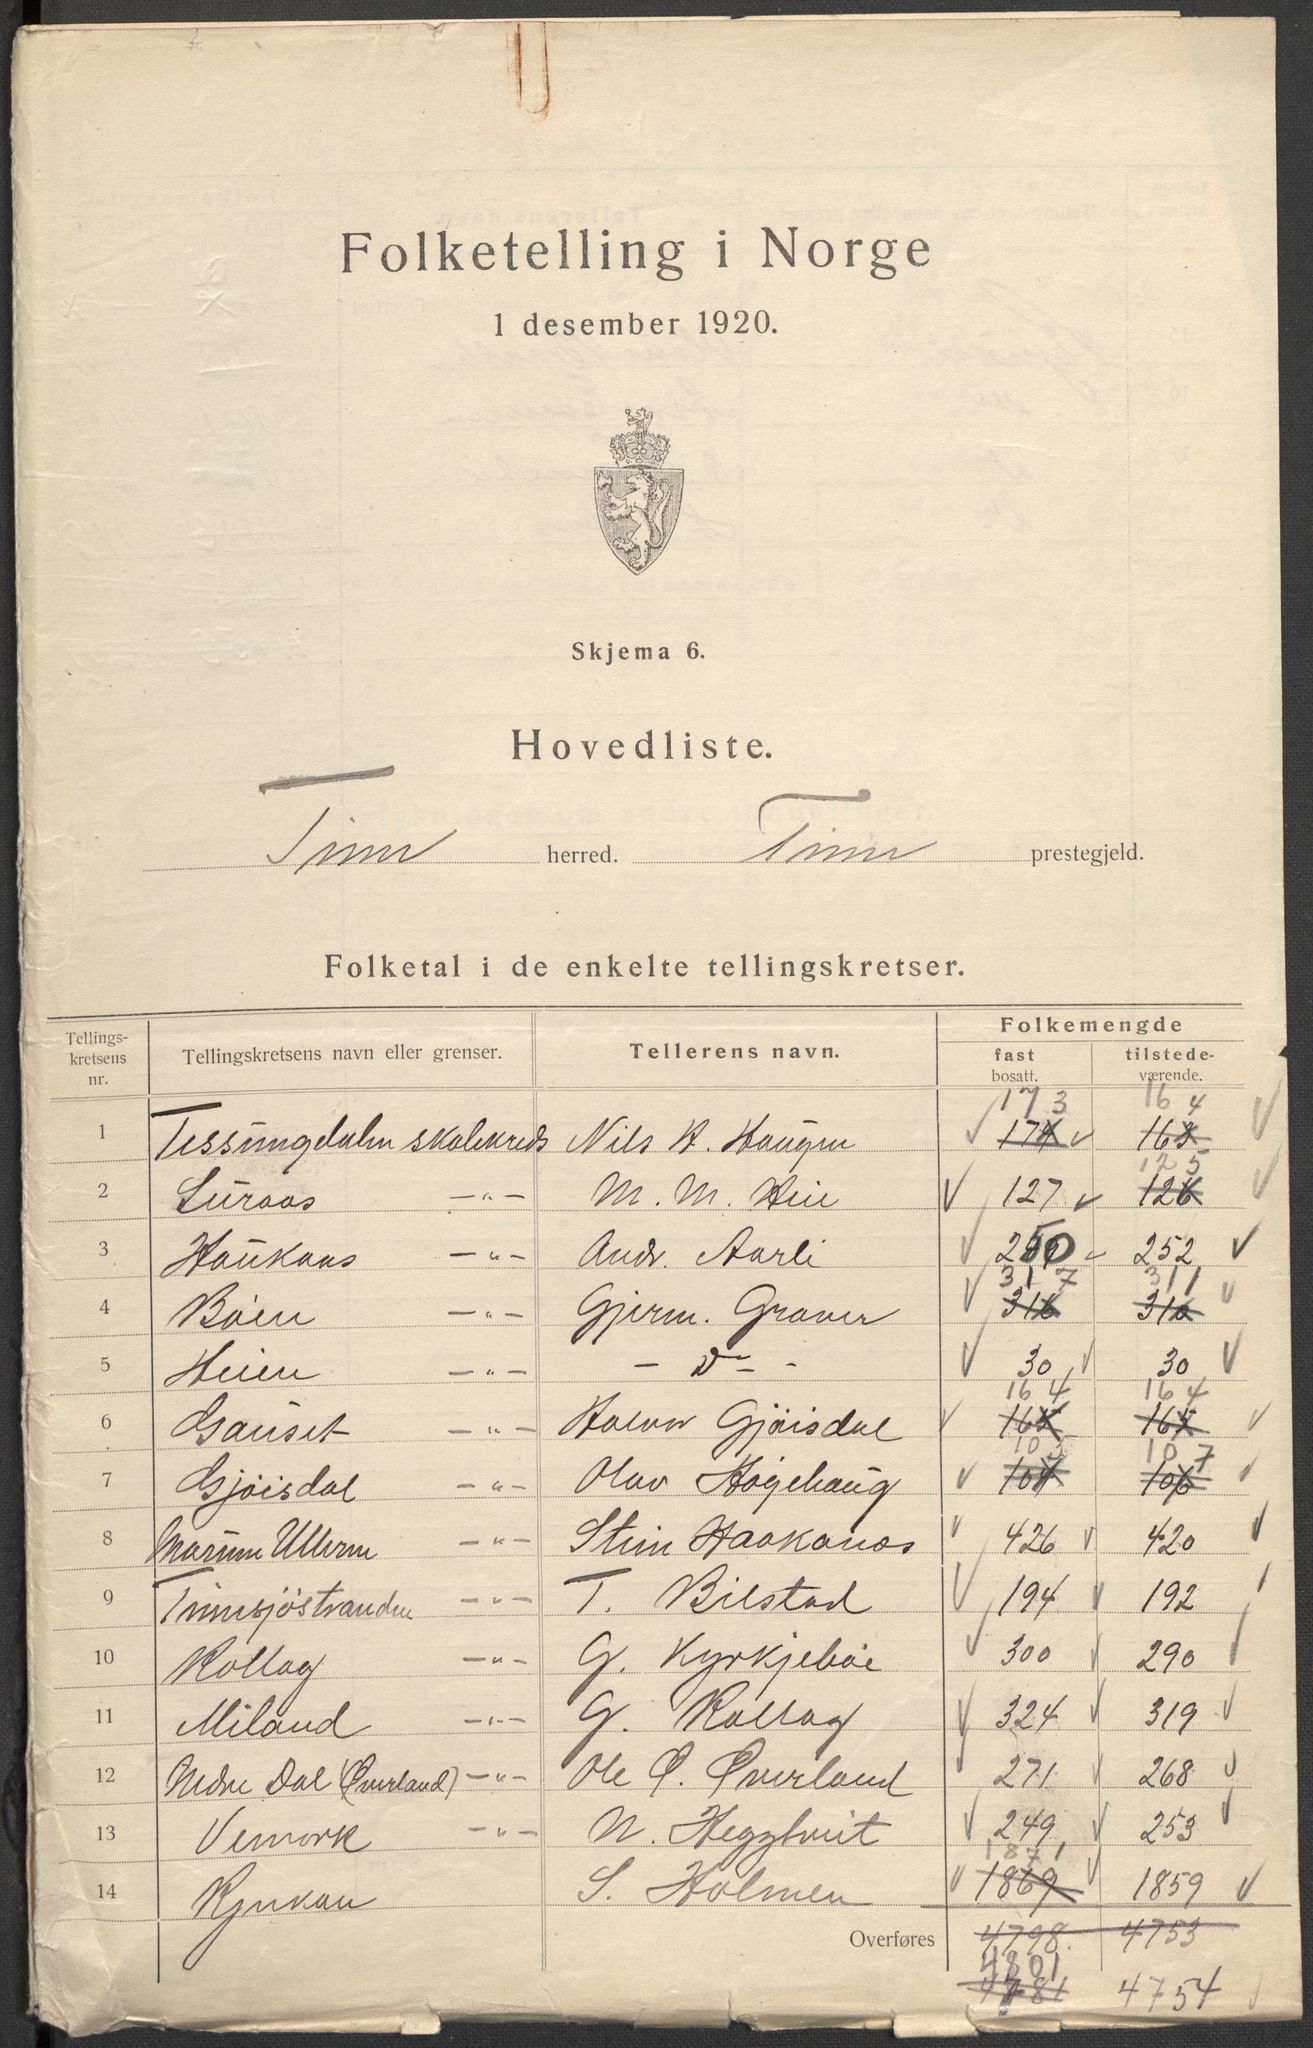 Folketelling i Norge
1 desember 1920.
Skjema 6.
Hovedliste.
Tinn herred. Tinn prestegjeld.
Folketal i de enkelte tellingskretser.
Tellings-kretsens nr. Tellingskretsens navn eller grenser. Tellerens navn. Folkemengde fast bosatt. tilstede-værende.
173 164
1 Tessungdalen skolekreds Nils A. Haugen 174 163
125
2 Luraas —"— M. M. Heie 127 126
3 Haukaas —"— Andr. Aarli 250 252
317 311
4 Böen —"— Gjerm. Graver 316 310
5 Heien —"— — D — - 30 30
164 164
6 Gauset —"— Halvor Gjöisdal 165 165
107
7 Gjöisdal —"— Olav Högehaug 104 106
8 Marum Ulleren —"— Stein Haakanes 426 420
9 Tinnsjöstranden —"— T. Bilstad 194 192
10 Rollag —"— G. Kyrkjeböe 300 290
11 Miland —"— G. Rollag 324 319
12 Nedre Dal (Øverland) —"— Ole O. Øverland 271 268
13 Vemork —"— N. Heggtveit 249 253
1871
14 Rjukan S. Holmen 1869 1859
Overføres 4798. 4753
4801
4781 4754